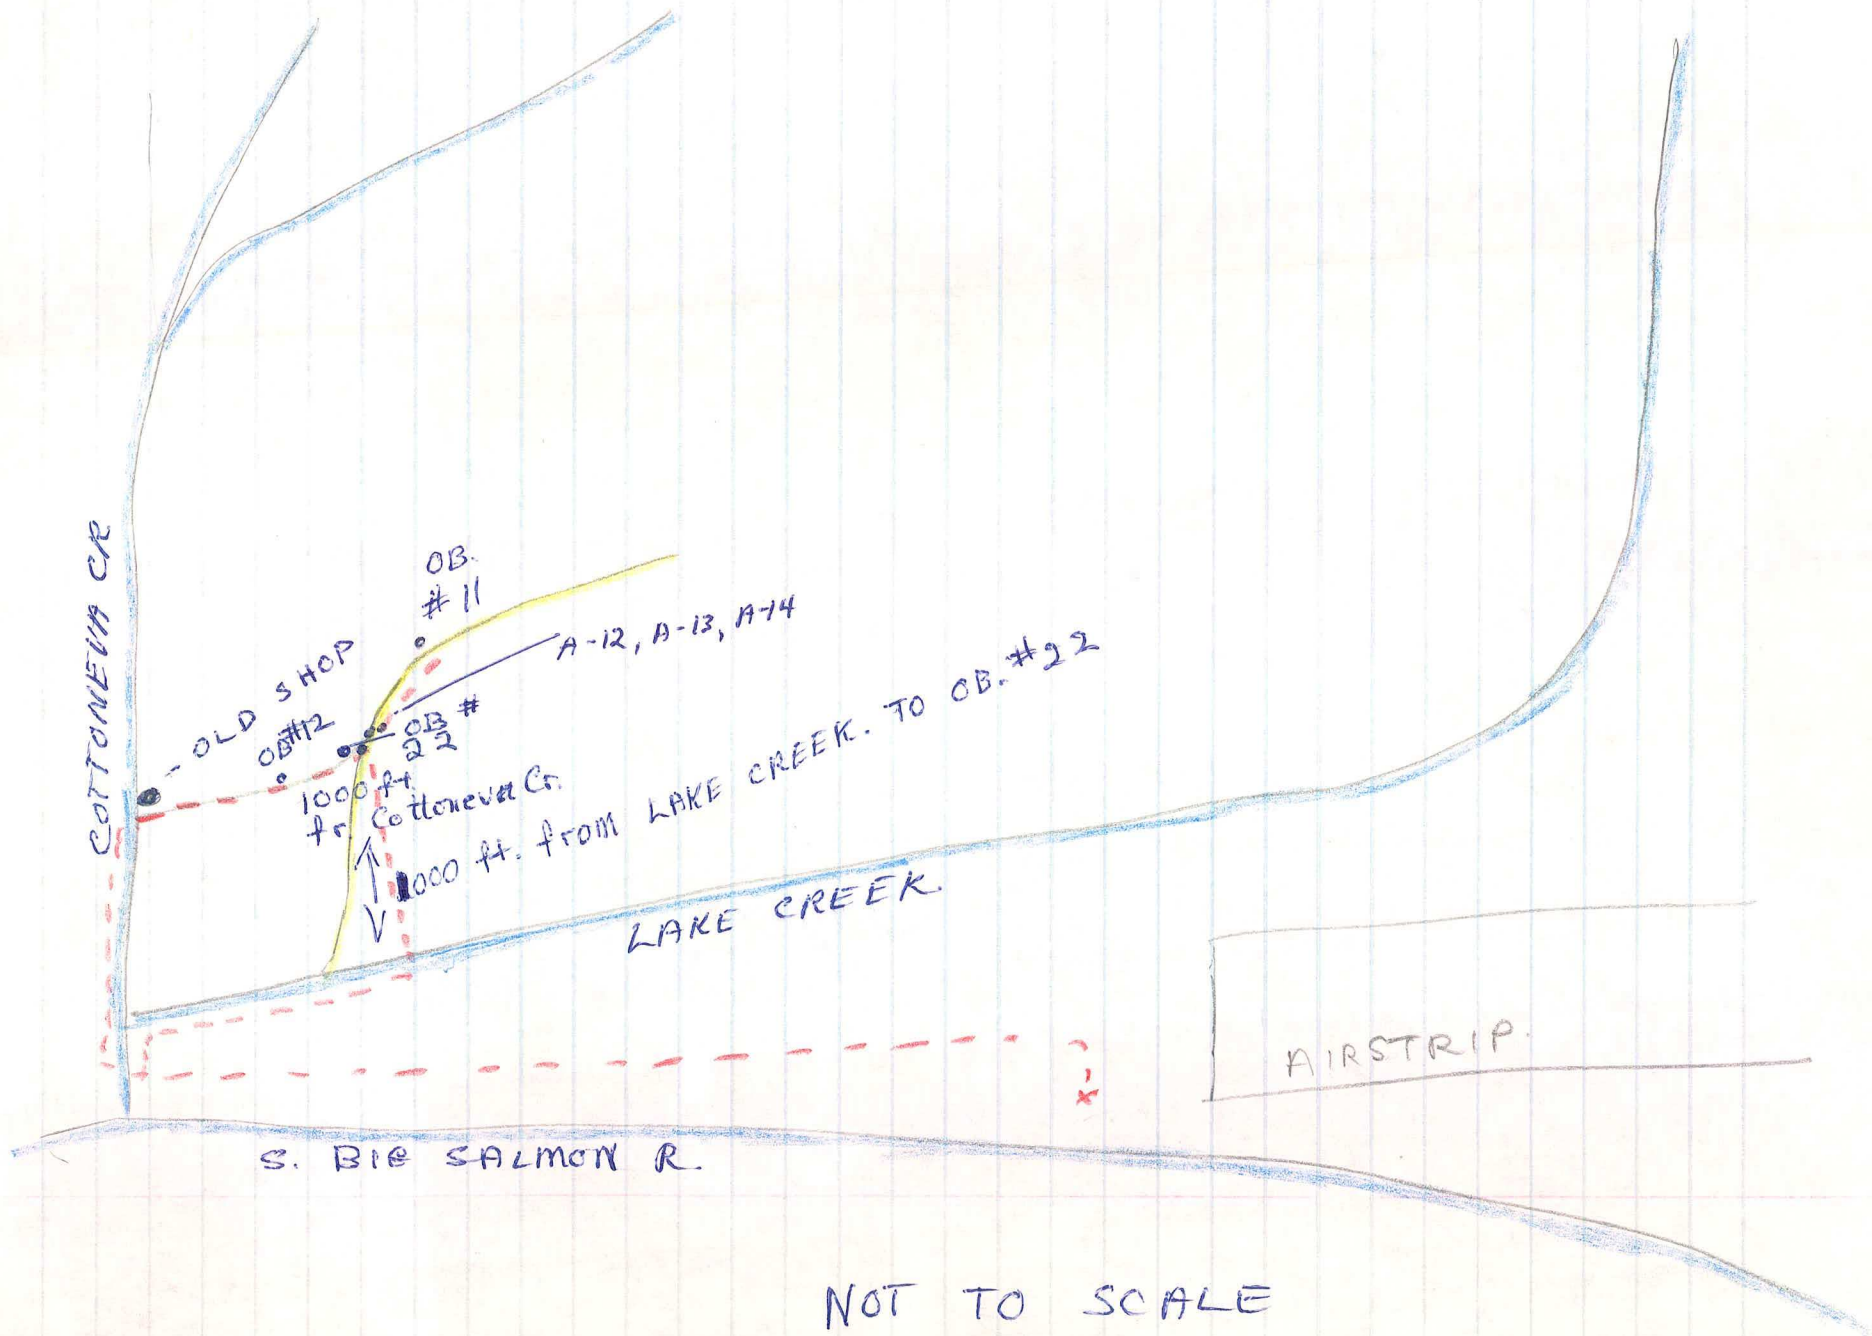 COTTONEVA CR
OB.
# 11
A-12, A-13, A-14
OLD SHOP
OB #12
OB #
22
1000 ft.
fr. Cottoneva Cr.
1000 ft. from LAKE CREEK. TO OB. #22
LAKE CREEK.
AIRSTRIP.
x
S. BIG SALMON R.
NOT TO SCALE